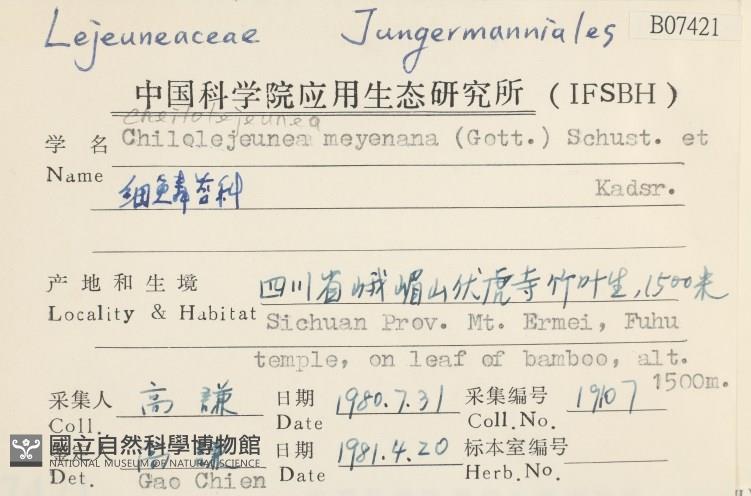 Lejeuneaceae Jungermanniales B07421
中国科学院应用生态研究所 (IFSBH)
cheilolejeunea
学名 Chilolejeunea meyenana (Gott.) Schust. et
Name 细鳞苔科 Kadsr.
产地和生境 四川省峨嵋山伏虎寺竹叶生,1500米
Locality & Habitat Sichuan Prov. Mt. Ermei, Fuhu
temple, on leaf of bamboo, alt.
1500m.
采集人 高謙 日期 1980.7.31 采集编号 19107
Coll. Date Coll.No.
國立自然科學博物館
NATIONAL MUSEUM OF NATURAL SCIENCE
鉴定人 高謙 日期 1981.4.20 标本室编号
Det. Gao Chien Date Herb.No.